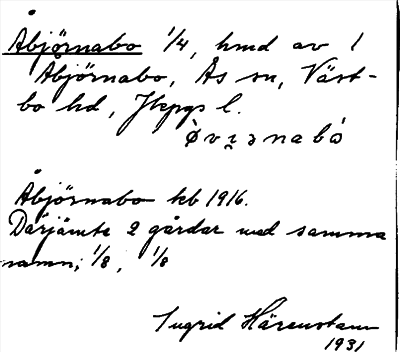 Åbjörnabo 1/4, hmd av 1
Åbjörnabo, Ås sn, Väst-
bo hd, Jkpgs l.
Åbjörnabo kb 1916.
Därjämte 2 gårdar med samma
namn; 1/8, 1/8
Ingrid Härenstam
1931